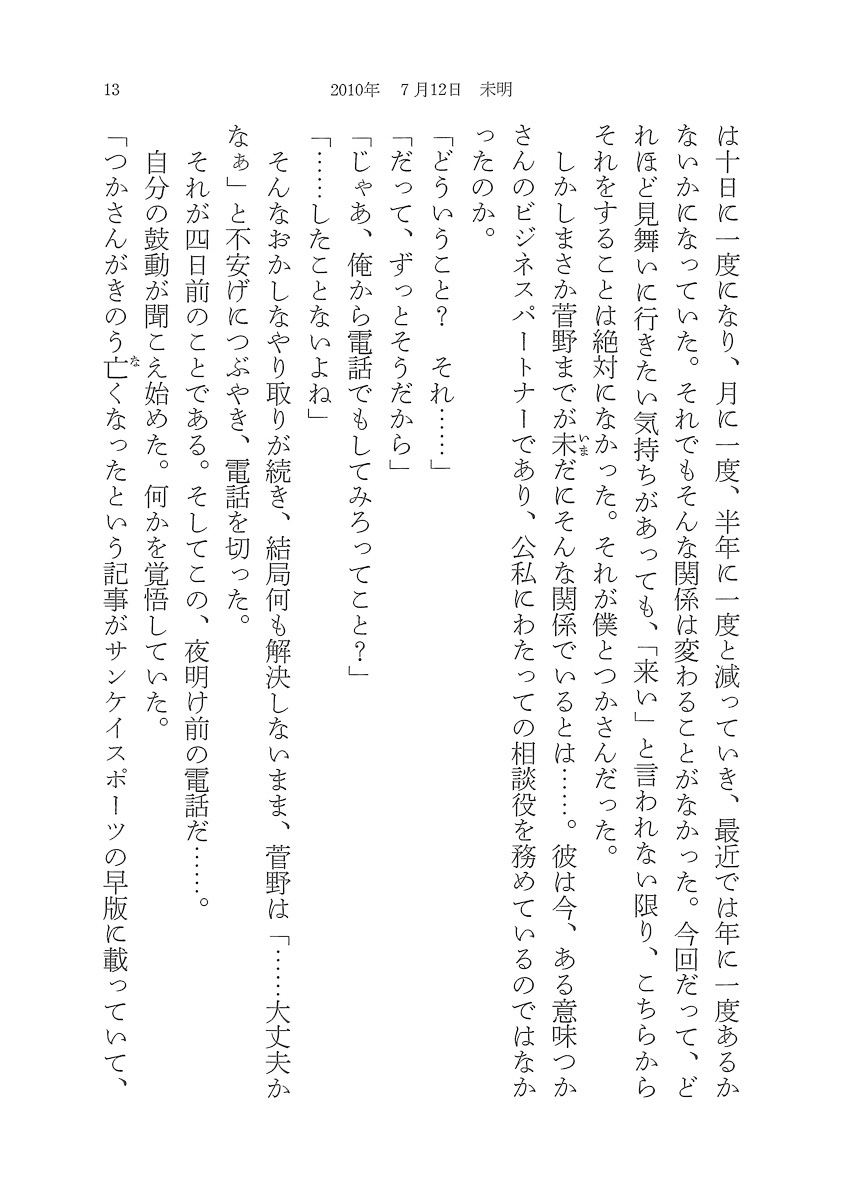 13
2010年　7月12日　未明
は十日に一度になり、月に一度、半年に一度と減っていき、最近では年に一度あるか
ないかになっていた。それでもそんな関係は変わることがなかった。今回だって、ど
れほど見舞いに行きたい気持ちがあっても、「来い」と言われない限り、こちらから
それをすることは絶対になかった。それが僕とつかさんだった。
しかしまさか菅野までが未だにそんな関係でいるとは……。彼は今、ある意味つか
いま
さんのビジネスパートナーであり、公私にわたっての相談役を務めているのではなか
ったのか。
「どういうこと？　それ……」
「だって、ずっとそうだから」
「じゃあ、俺から電話でもしてみろってこと？」
「……したことないよね」
そんなおかしなやり取りが続き、結局何も解決しないまま、菅野は「……大丈夫か
なぁ」と不安げにつぶやき、電話を切った。
それが四日前のことである。そしてこの、夜明け前の電話だ……。
自分の鼓動が聞こえ始めた。何かを覚悟していた。
「つかさんがきのう亡くなったという記事がサンケイスポーツの早版に載っていて、
な